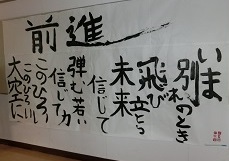 前進
いま
別れのとき
飛び立とう
未来
信じて
弾む若い
信じて
このひろい
このひろい
大空に